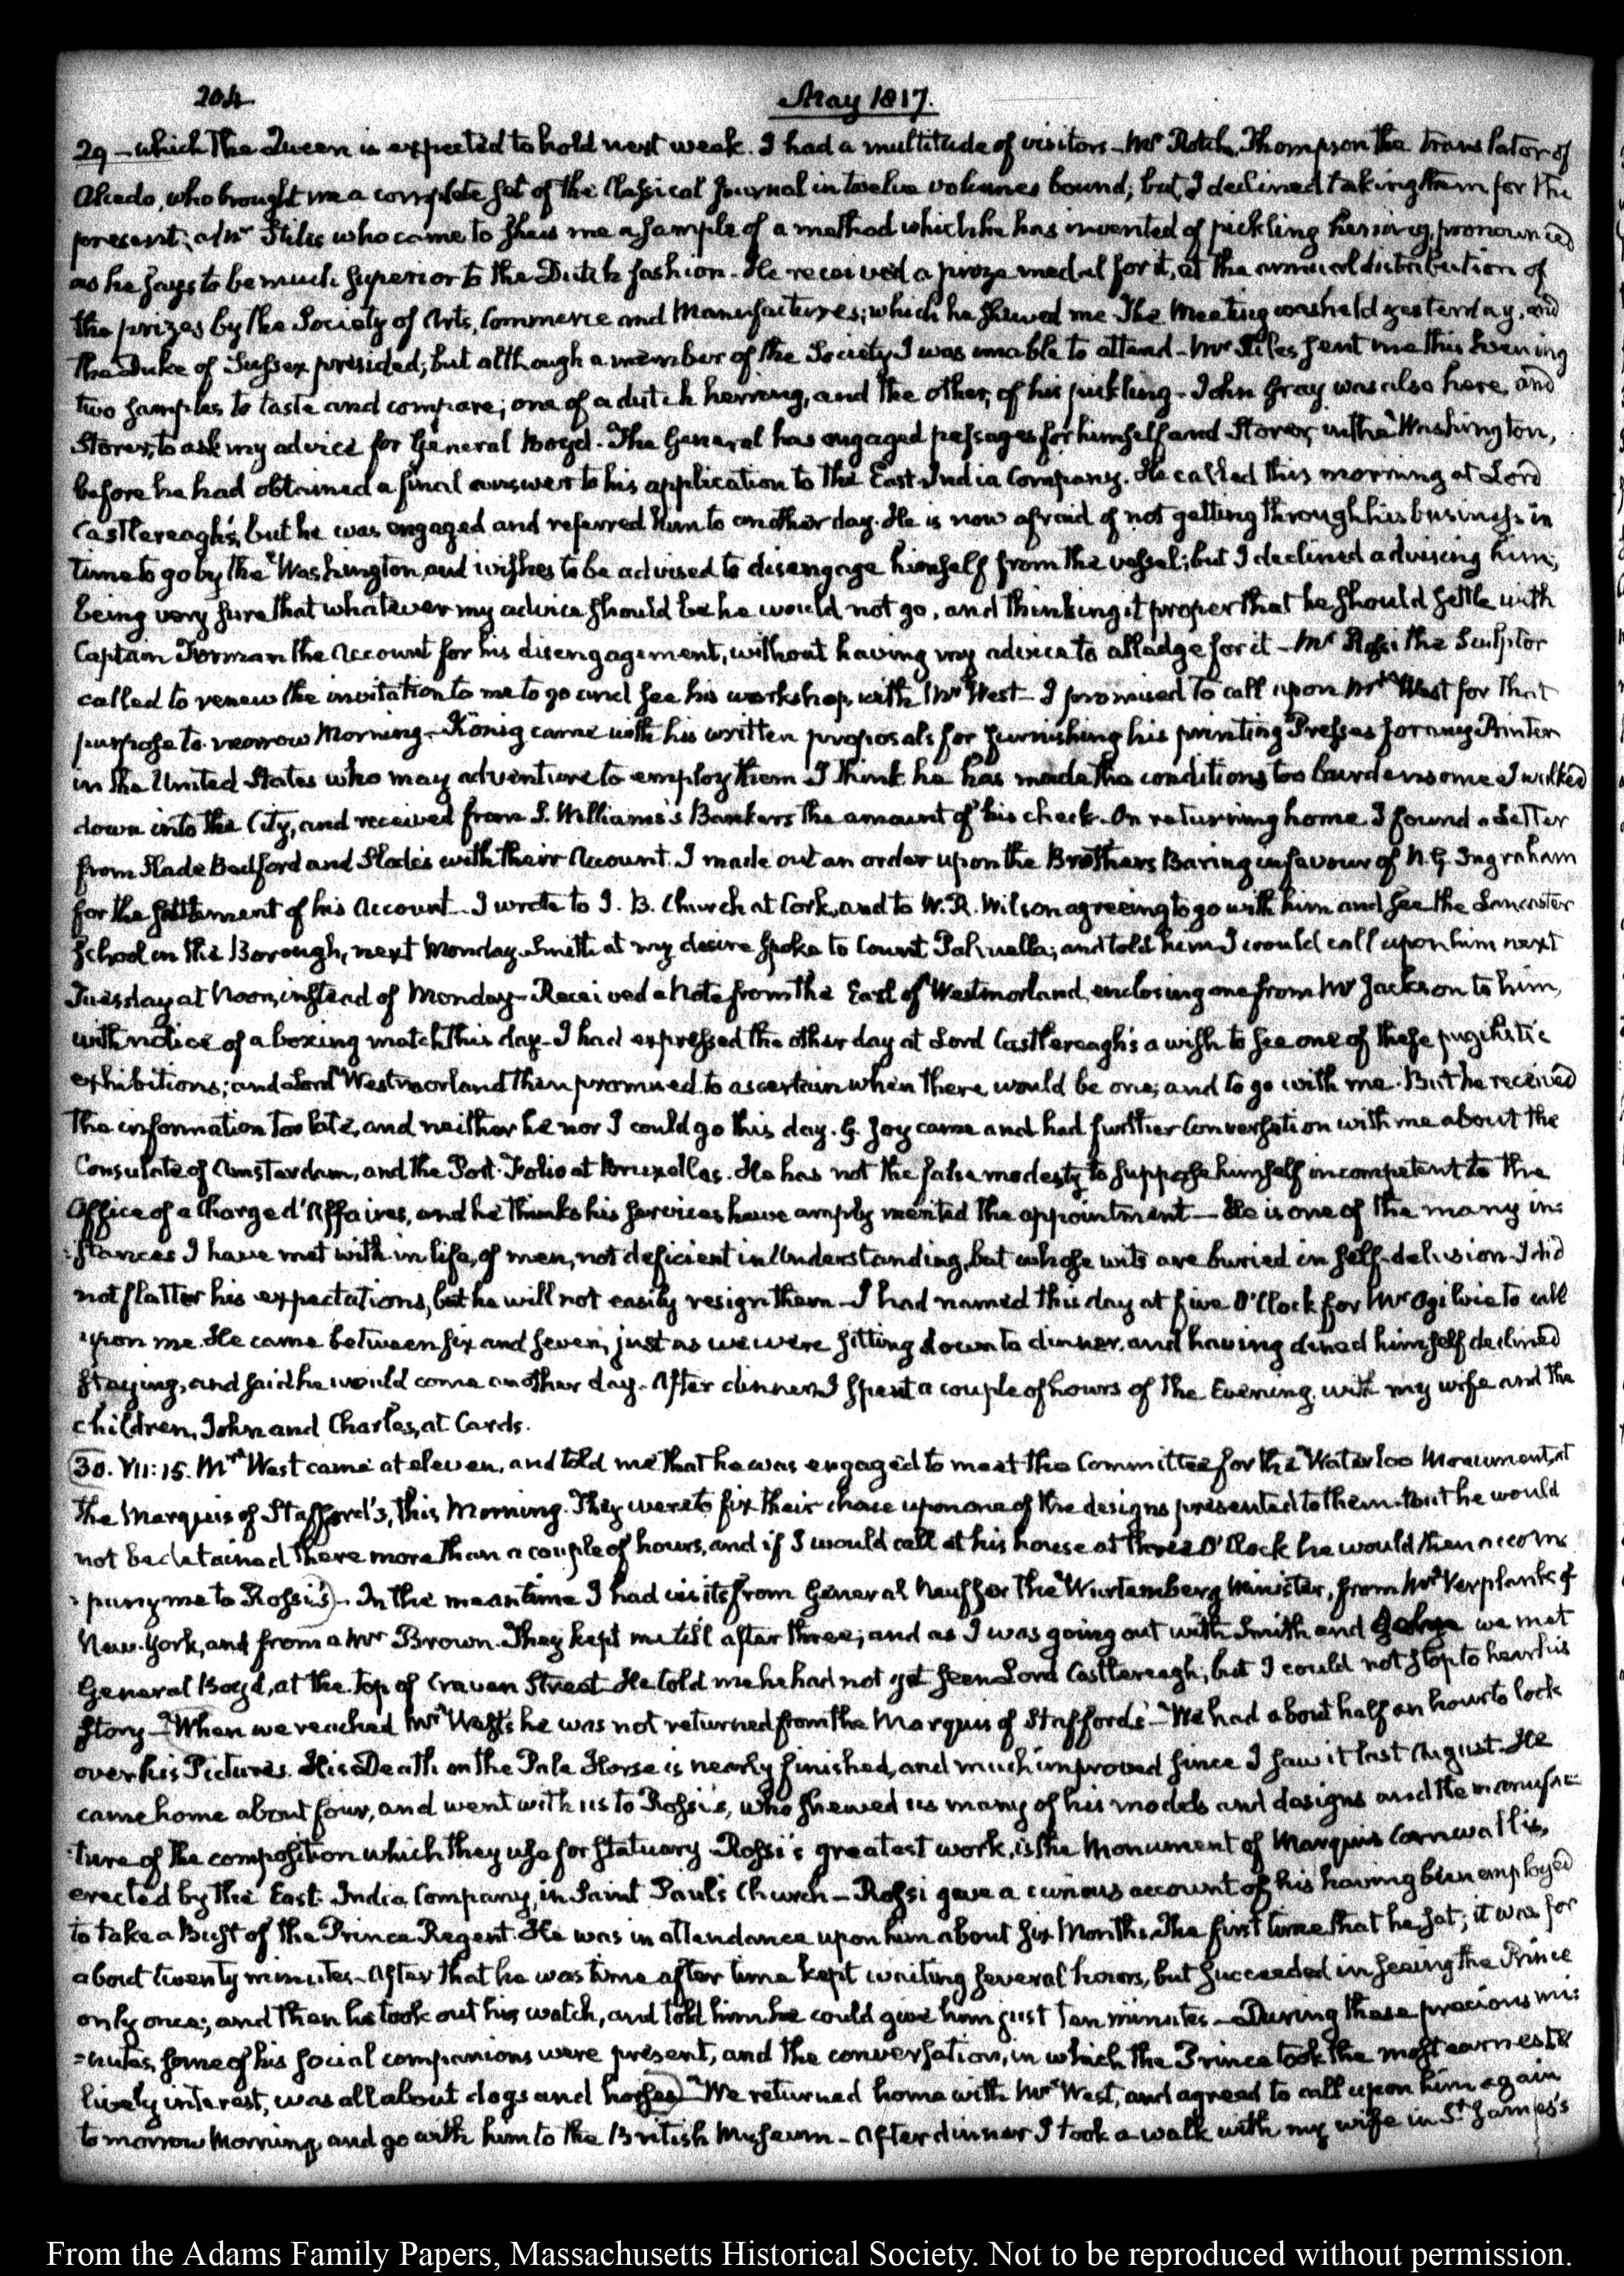 204
May 1817.
29 – which the Queen is expected to hold next week. I had a multitude of visitors – Mr Rotch, Thompson the translator of
Alcedo, who brought me a complete set of the Classical Journal in twelve volumes bound; but I declined taking them for the
present; a Mr Stiles who came to shew me a sample of a method which he has invented of pickling herring, pronounced
as he says to be much superior to the Dutch fashion – He received a prize medal for it, at the annual distribution of
the prizes by the Society of Arts, Commerce and Manufactures; which he shewed me. The Meeting was held yesterday, and
the Duke of Sussex presided; but although a member of the Society I was unable to attend – Mr Stiles sent me this Evening
two samples to taste and compare; one of a dutch herring, and the other, of his pickling – John Gray was also here, and
Storer, to ask my advice for General Boyd. The General has engaged passages for himself and Storer, in the Washington,
before he had obtained a final answer to his application to the East India Company. He called this morning at Lord
Castlereagh's, but he was engaged and referred him to another day. He is now afraid of not getting through his business in
time to go by the Washington, and wishes to be advised to disengage himself from the vessel; but I declined advising him;
being very sure that whatever my advice should be he would not go, and thinking it proper that he should settle with
Captain Forman the Account for his disengagement, without having my advice to alledge for it – Mr Rossi the Sculptor
called to renew the invitation to me to go and see his workshop, with Mr West – I promised to call upon Mr West for that
purpose to-morrow Morning – König came with his written proposals for furnishing his printing Presses for any Printer
in the United States who may adventure to employ them. I think he has made the conditions too burdensome. I walked
down into the City, and received from S. Williams's Bankers the amount of his check. On returning home I found a Letter
from Slade Bedford and Slade's with their Account. I made out an order upon the Brothers Baring in favour of N. G. Ingraham
for the settlement of his Account – I wrote to J. B. Church at Cork, and to W. R. Wilson agreeing to go with him and see the Lancaster
School in the Borough, next Monday. Smith at my desire spoke to Count Palmella; and told him I would call upon him next
Tuesday at Noon, instead of Monday – Received a Note from the Earl of Westmorland, enclosing one from Mr Jackson to him,
with notice of a boxing match this day – I had expressed the other day at Lord Castlereagh's a wish to see one of these pugilistic
exhibitions; and Lord Westmorland then promised to ascertain when there would be one; and to go with me. But he received
the information too late, and neither he nor I could go this day. G. Joy came and had further Conversation with me about the
Consulate of Amsterdam, and the Port-Folio at Bruxelles. He has not the false modesty to suppose himself incompetent to the
Office of a Chargé d'Affaires, and he thinks his services have amply merited the appointment – He is one of the many in:
:stances I have met with in life, of men, not deficient in Understanding, but whose wits are buried in self-delusion. I did
not flatter his expectations, but he will not easily resign them – I had named this day at five O'Clock for Mr Ogilvie to call
upon me. He came between six and seven, just as we were sitting down to dinner, and having dined himself declined
staying, and said he would come another day – After dinner I spent a couple of hours of the Evening, with my wife and the
children, John and Charles, at Cards.
30. VII: 15. Mr West came at eleven, and told me that he was engaged to meet the Committee for the Waterloo Monument, at
the Marquis of Stafford's, this Morning. They were to fix their choice upon one of the designs presented to them. But he would
not be detained there more than a couple of hours, and if I would call at his house at three O'Clock he would then accom:
:pany me to Rossi's – In the meantime I had visits from General Neuffer the Wurtemberg Minister, from Mr Verplank of
New-York, and from a Mr Brown. They kept me till after three; and as I was going out with Smith and George we met
General Boyd, at the top of Craven Street. He told me he had not yet seen Lord Castlereagh, but I could not stop to hear his
story – When we reached Mr West's he was not returned from the Marquis of Stafford's – We had about half an hour to look
over his Pictures. His Death on the Pale Horse is nearly finished, and much improved since I saw it last August. He
came home about four, and went with us to Rossi's, who shewed us many of his models and designs and the manufac=
:ture of the composition which they use for statuary. Rossi's greatest work, is the Monument of Marquis Cornwallis,
erected by the East-India Company, in Saint Paul's Church – Rossi gave a curious account of his having been employed
to take a Bust of the Prince Regent. He was in attendance upon him about six Months. The first time that he sat; it was for
about twenty minutes – After that he was time after time kept waiting several hours, but succeeded in seeing the Prince
only once; and then he took out his watch, and told him he could give him just ten minutes – During these precious mi:
=nutes, some of his social companions were present, and the conversation, in which the Prince took the most earnest &
lively interest, was all about dogs and horses – We returned home with Mr West, and agreed to call upon him again
tomorrow Morning, and go with him to the British Museum – After dinner I took a walk with my wife in St. James's
From the Adams Family Papers, Massachusetts Historical Society. Not to be reproduced without permission.